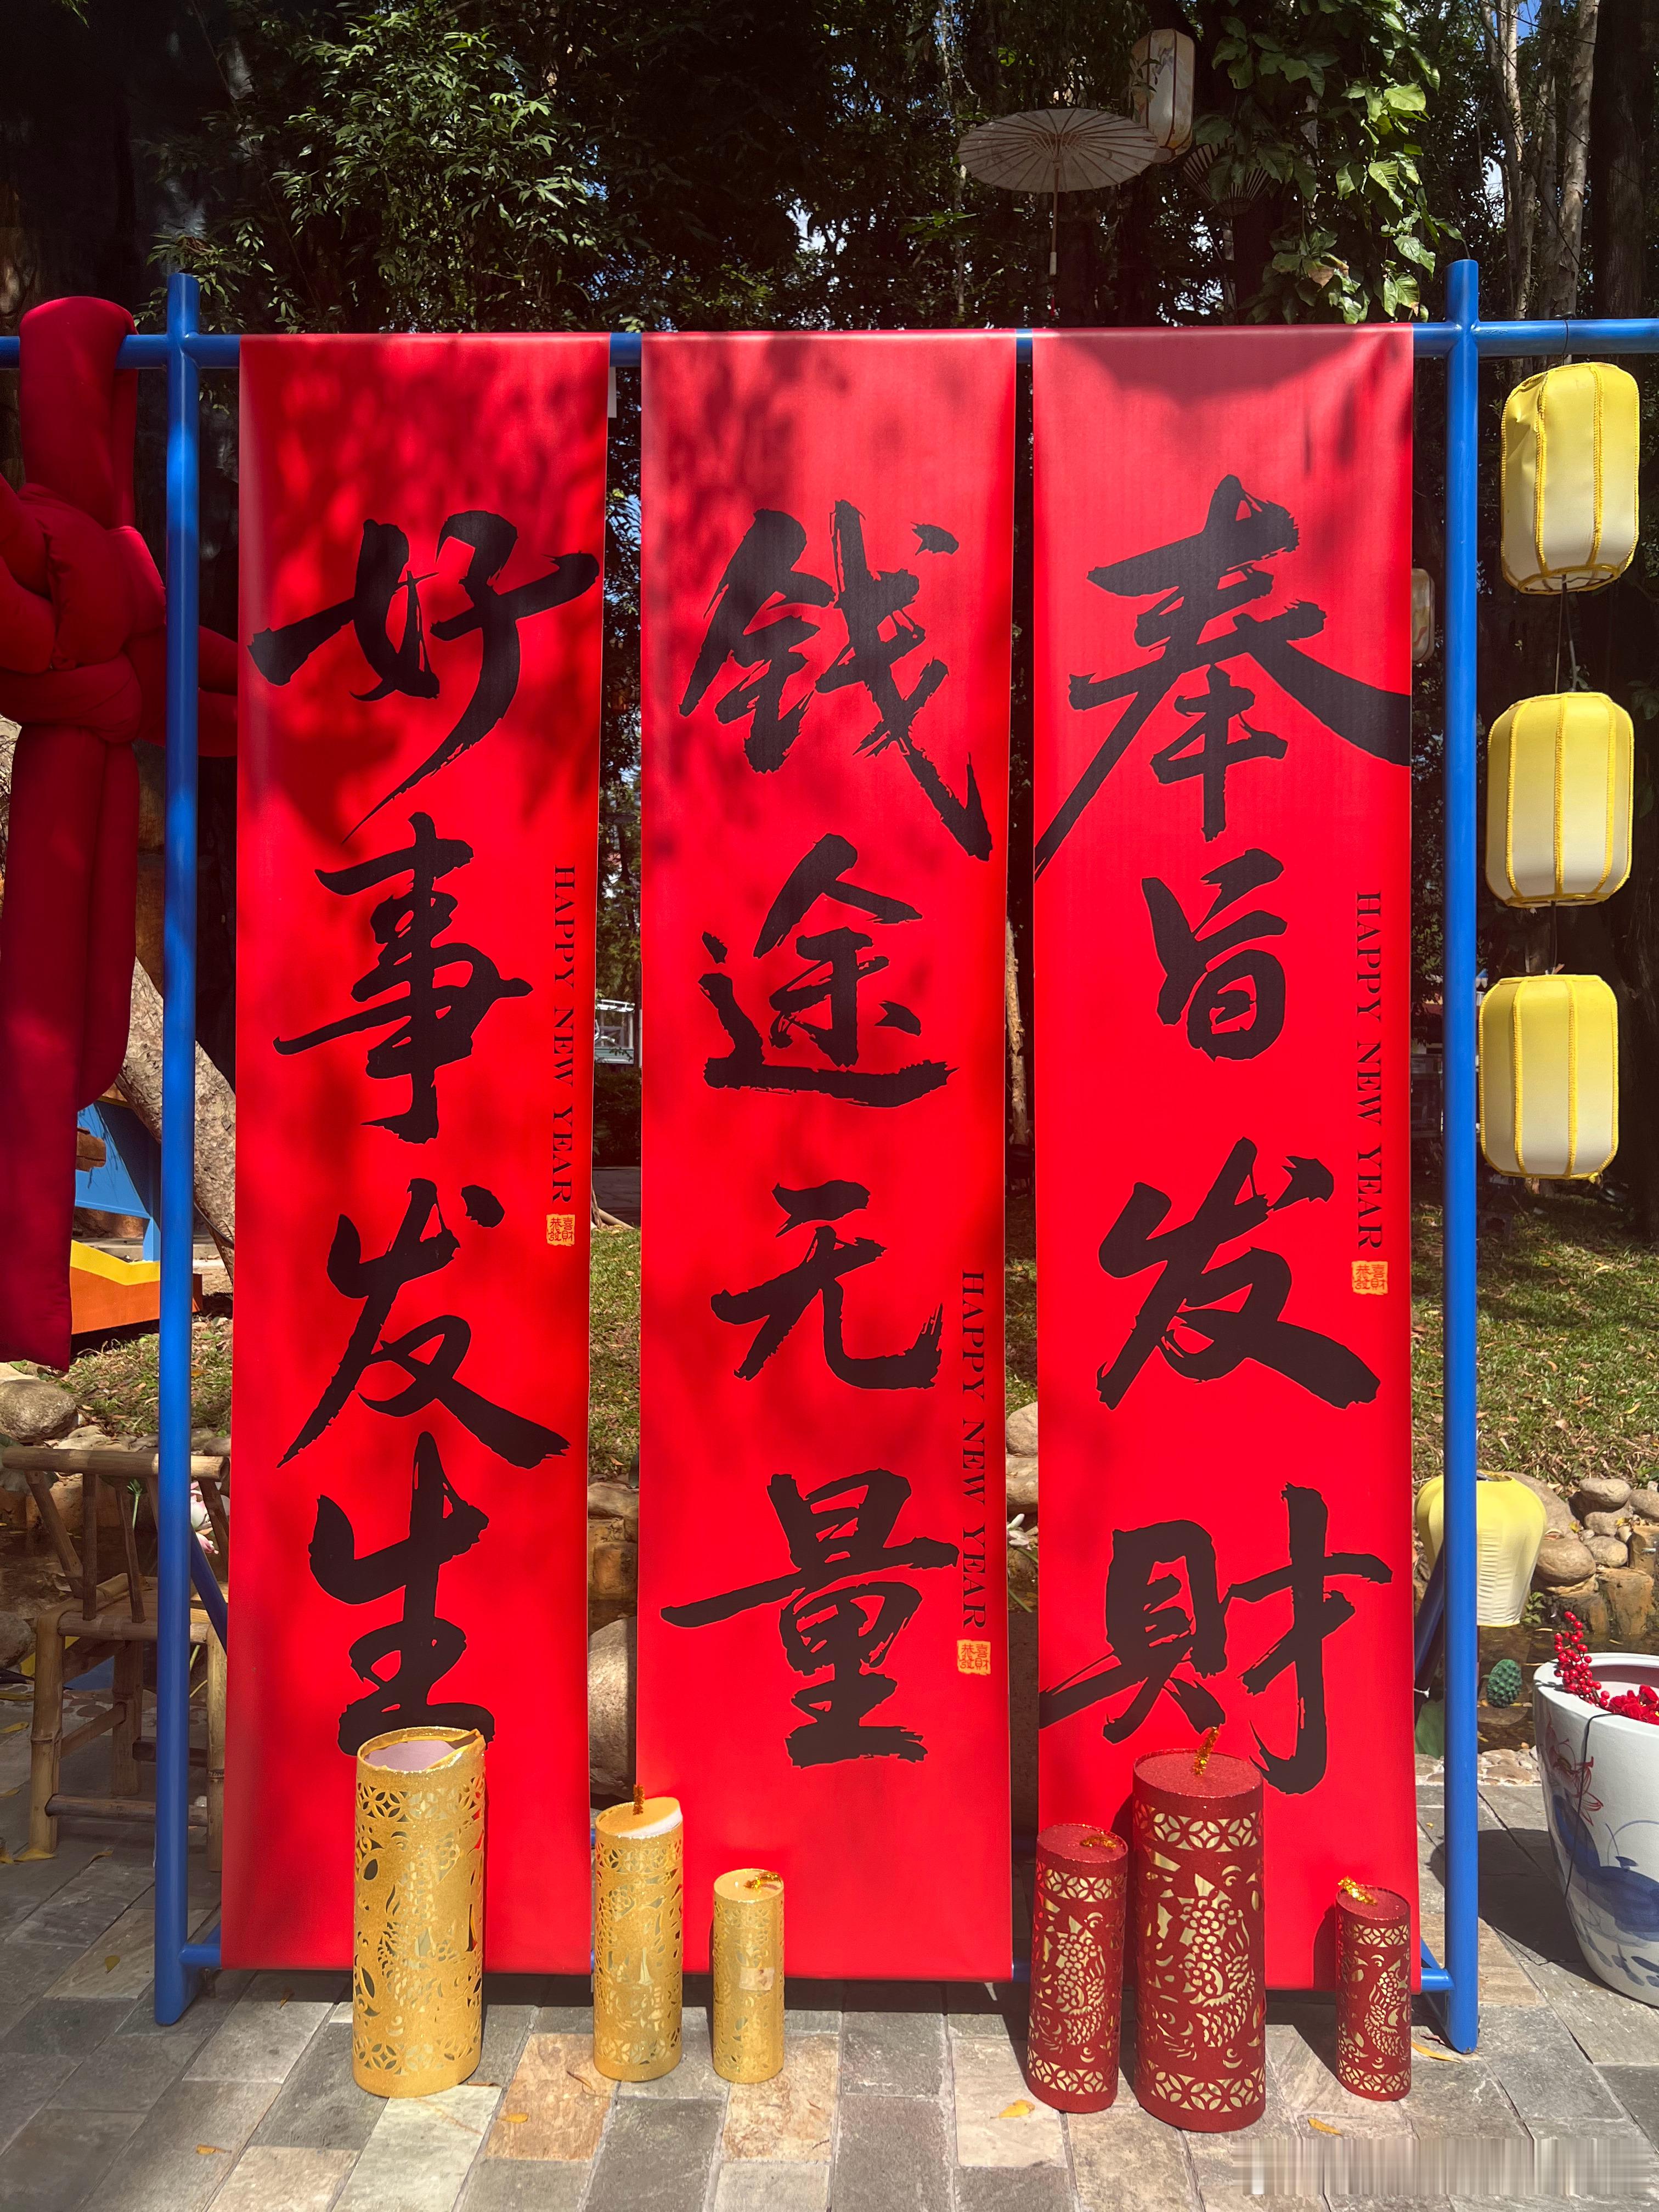 奉旨发财
HAPPY NEW YEAR
恭喜發財
钱途无量
HAPPY NEW YEAR
恭喜發財
好事发生
HAPPY NEW YEAR
恭喜發財